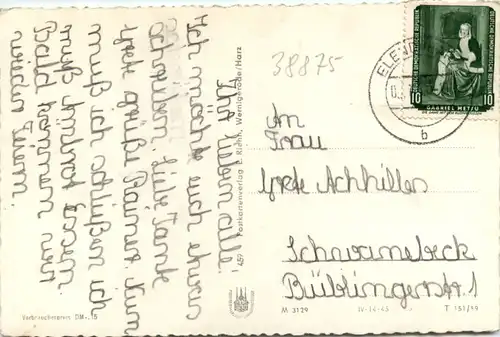 Ihr lieben alle!
Ich möchte euch etwas
schreiben. Liebe Tante
Grete grüße Rainer. Nun
muß ich schlißen ich
muß nämlich Essen.
Beld kommen wir
unsern Ferien.
459 Postkartenverlag E. Riehn, Wernigerode/Harz
38875
ELEND
b
DEUTSCHE DEMOKRATISCHE REPUBLIK
10 GABRIEL METSU 10
An
Frau
Grete Achhilles
Schwanebeck
Büblingerstr. 1
Verbraucherpreis DM -.15
M 3129
IV-14-45
T 151/59